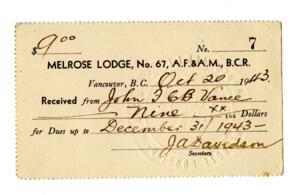 $9.00 No. 7
MELROSE LODGE, No. 67, A.F.&A.M., B.C.R.
Vancouver, B.C. Oct 20 1943
Received from John I C B Vance
Nine xx/100 Dollars
for Dues up to December 31/1943-
J A Davidson
Secretary